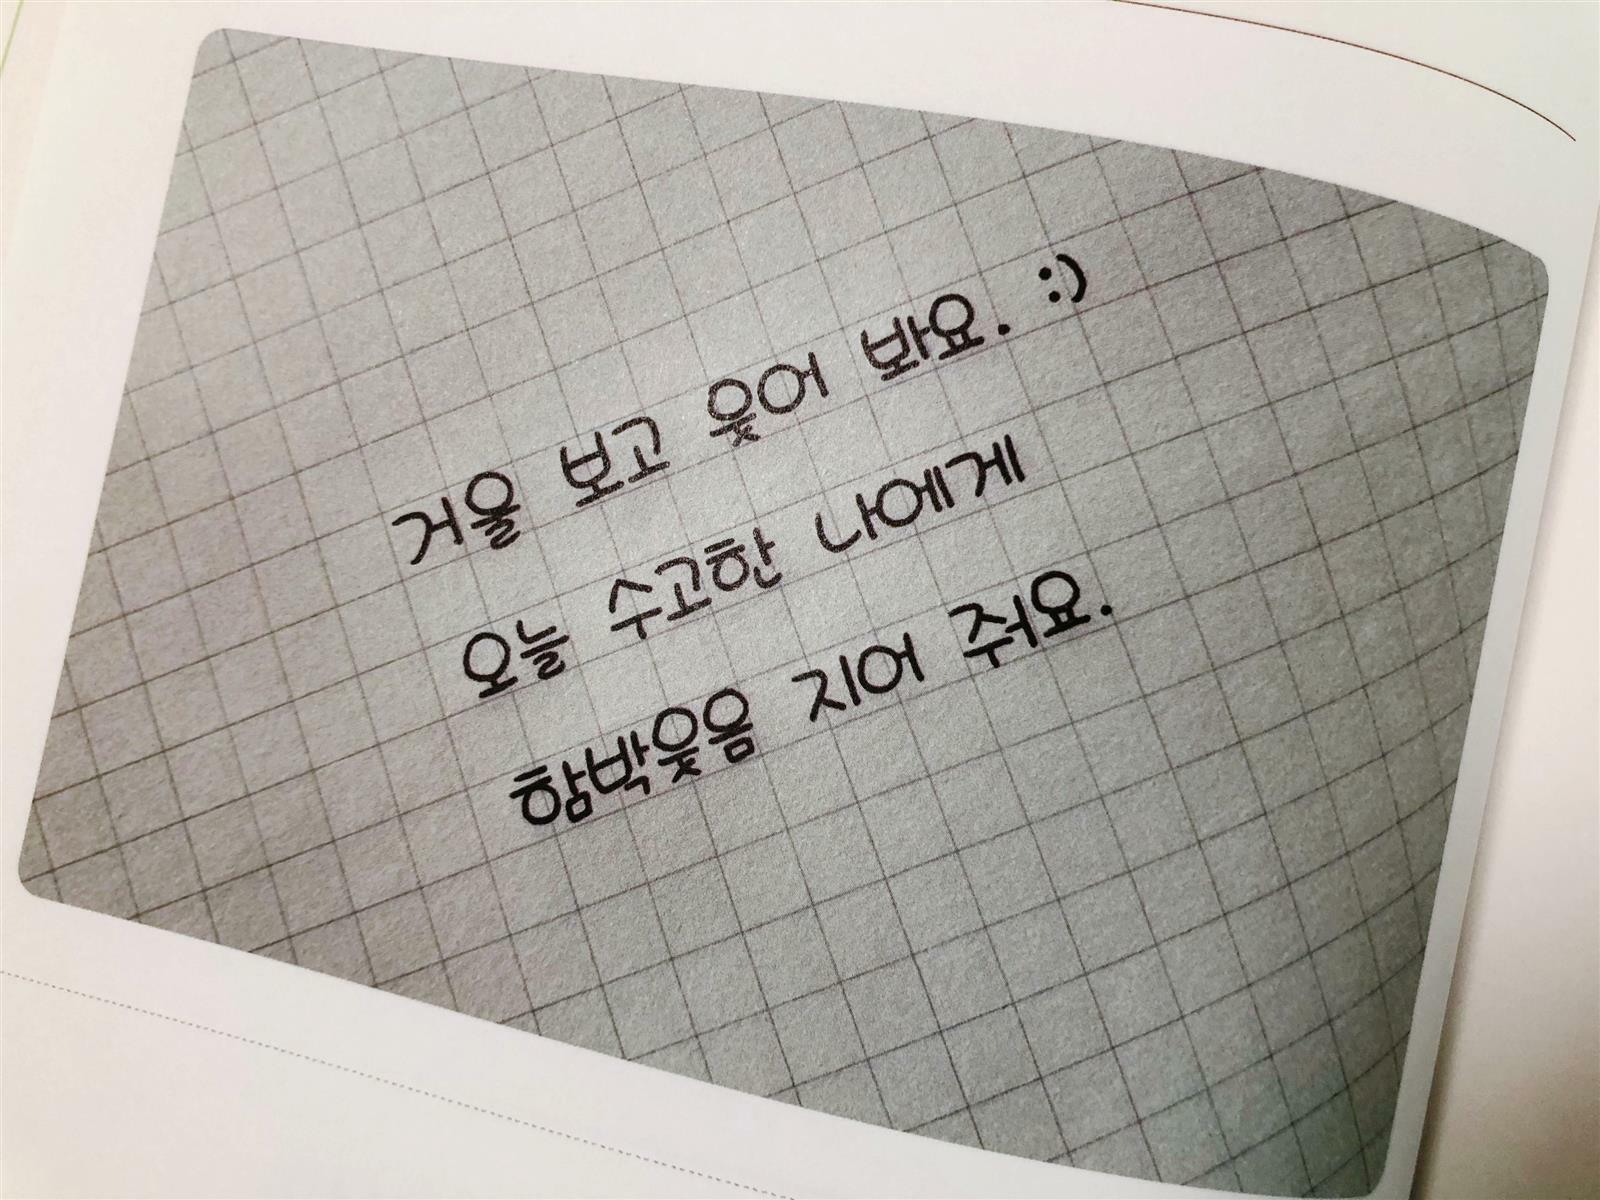 거울 보고 웃어 봐요. :)
오늘 수고한 나에게
함박웃음 지어 줘요.